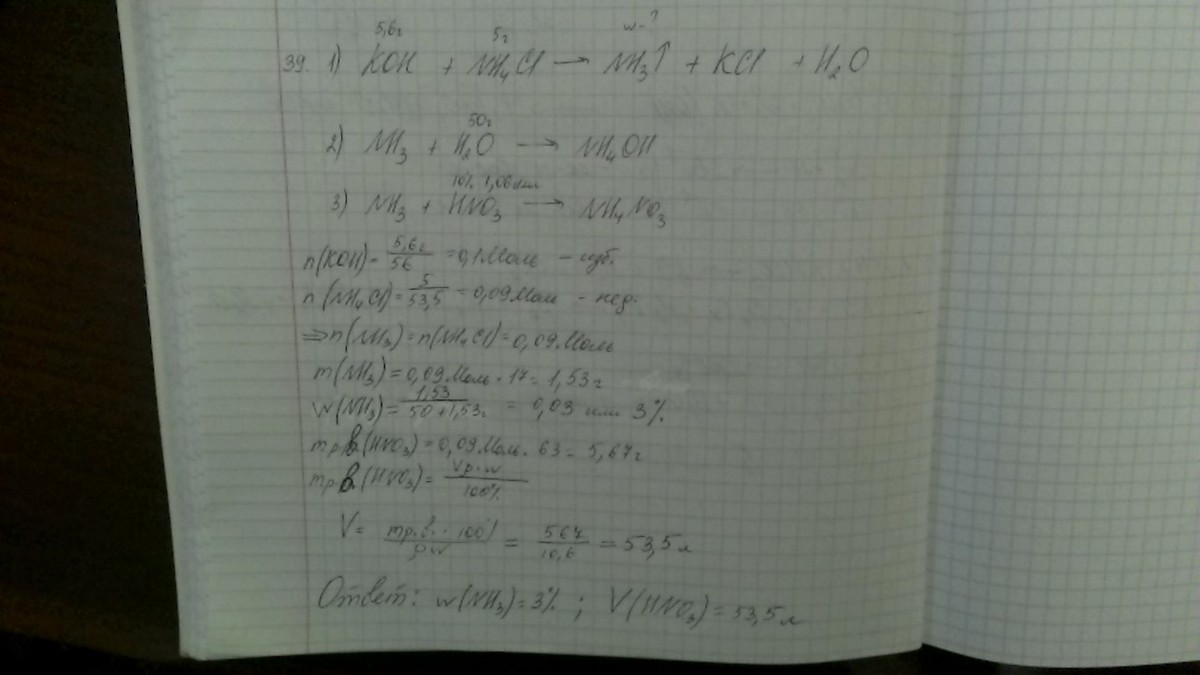 5,6г 5г w-?
39. 1) KOH + NH₄Cl → NH₃↑ + KCl + H₂O
50г
2) NH₃ + H₂O → NH₄OH
10% 1,06
3) NH₃ + HNO₃ → NH₄NO₃
n(KOH) = 5,6г/56 = 0,1 Моль - изб.
n(NH₄Cl) = 5/53,5 = 0,09 Моль - нед.
⇒ n(NH₃) = n(NH₄Cl) = 0,09 Моль
m(NH₃) = 0,09 Моль · 17 = 1,53 г
w(NH₃) = 1,53/50+1,53г = 0,03 или 3%
mр.в.(HNO₃) = 0,09 Моль · 63 = 5,67 г
mр.в.(HNO₃) = Vρ·w/100%
V = mр.в. · 100%/ρw = 567/10,6 = 53,5 л
Ответ: w(NH₃) = 3% ; V(HNO₃) = 53,5 л